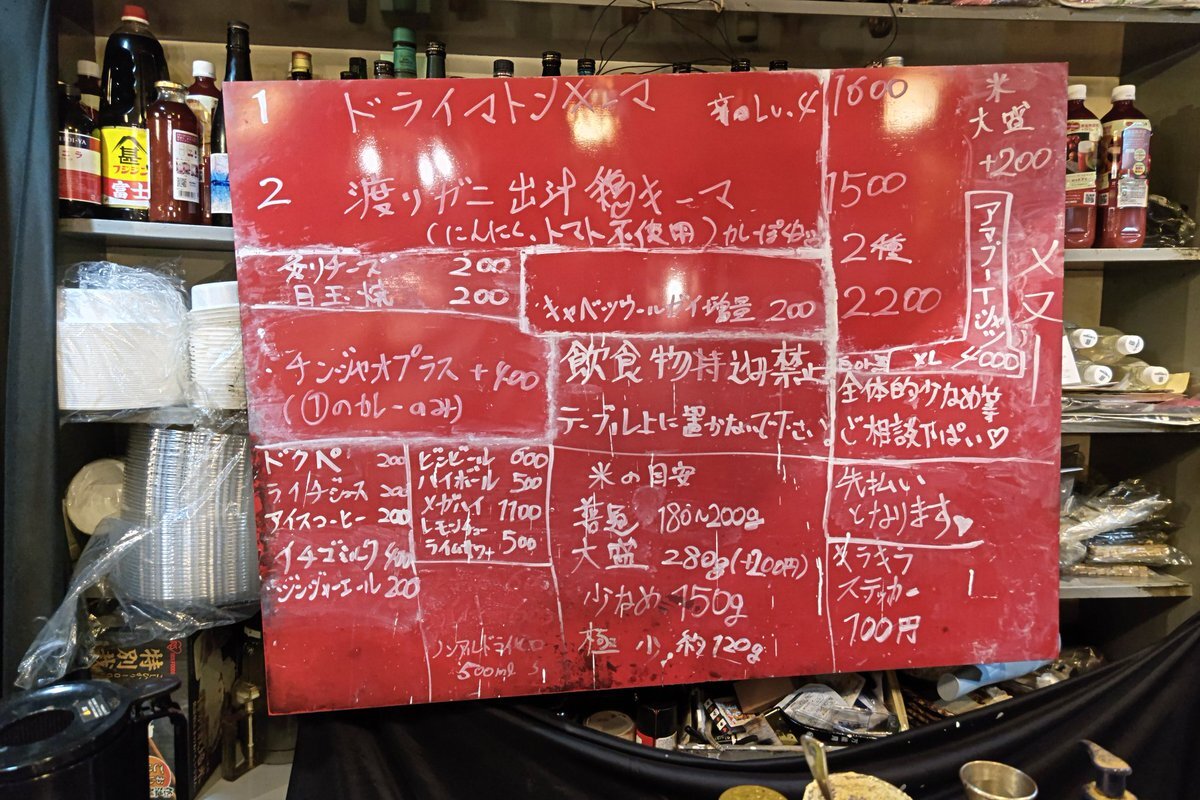 1 ドライマトンキーマ 辛口Lv.4 1600
2 渡りガニ出汁鶏キーマ 1500
(にんにく、トマト不使用)カレーぽくない
2種
2200
米
大盛
+200
アマブーイージャン
XL 4000
炙りチーズ 200
目玉焼 200
・キャベツウールガイ増量 200
・チンジャオプラス +400
(①のカレーのみ)
飲食物持込み禁止
テーブル上に置かないで下さい。
全体的少なめ等
ご相談やぱい♡
ドクペ 200
ライチジュース 200
アイスコーヒー 200
イチゴミルク 400
ジンジャーエール 200
ビンビール 600
ハイボール 500
メガハイ 1100
レモンチュー
ライムサワー 500
ノンアルドライゼロ
500ml
米の目安
普通 180~200g
大盛 280g(+200円)
少なめ 150g
極小 約120g
先払い
となります♥
キラキラ
ステッカー
100円
富士
特別